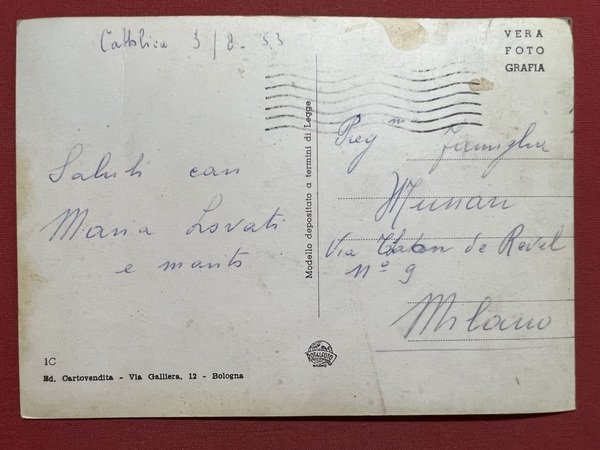 Cattolica 3/8-53
VERA
FOTO
GRAFIA
Saluti cari
Maria Lovati
e marito
Modello depositato a termini di Legge
Preg ma Famiglia
Munari
Via Thaon de Revel
Nº 9
Milano
1C
Ed. Cartovendita - Via Galliera, 12 - Bologna